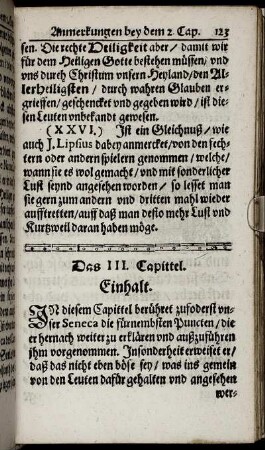 Anmerkungen bey dem 2 Cap. 123
sen. Die rechte Heiligkeit aber / damit wir
für dem Heiligen Gotte bestehen müssen / vnd
vns durch Christum vnsern Heyland / den Al-
lerheiligsten / durch wahren Glauben er-
grieffen / geschencket vnd gegeben wird / ist die-
sen Leuten vnbekandt gewesen.
(XXVI.) Ist ein Gleichnuß / wie
auch J. Lipsius dabey anmercket / von den fech-
tern oder andern spielern genommen / welche /
wann sie es wol gemacht / vnd mit sonderlicher
Lust seynd angesehen worden / so lesset man
sie gern zum andern vnd dritten mahl wieder
aufftretten / auff daß man desto mehr Lust vnd
Kurtzweil daran haben möge.
Das III. Capittel.
Einhalt.
IN diesem Capittel berühret zuföderst vn-
ser Seneca die fürnembsten Puncten / die
er hernach weiter zu erklären vnd außzuführen
jhm vorgenommen. Insonderheit erweiset er /
daß das nicht eben böse sey / was ins gemein
von den Leuten dafür gehalten vnd angesehen
wer-